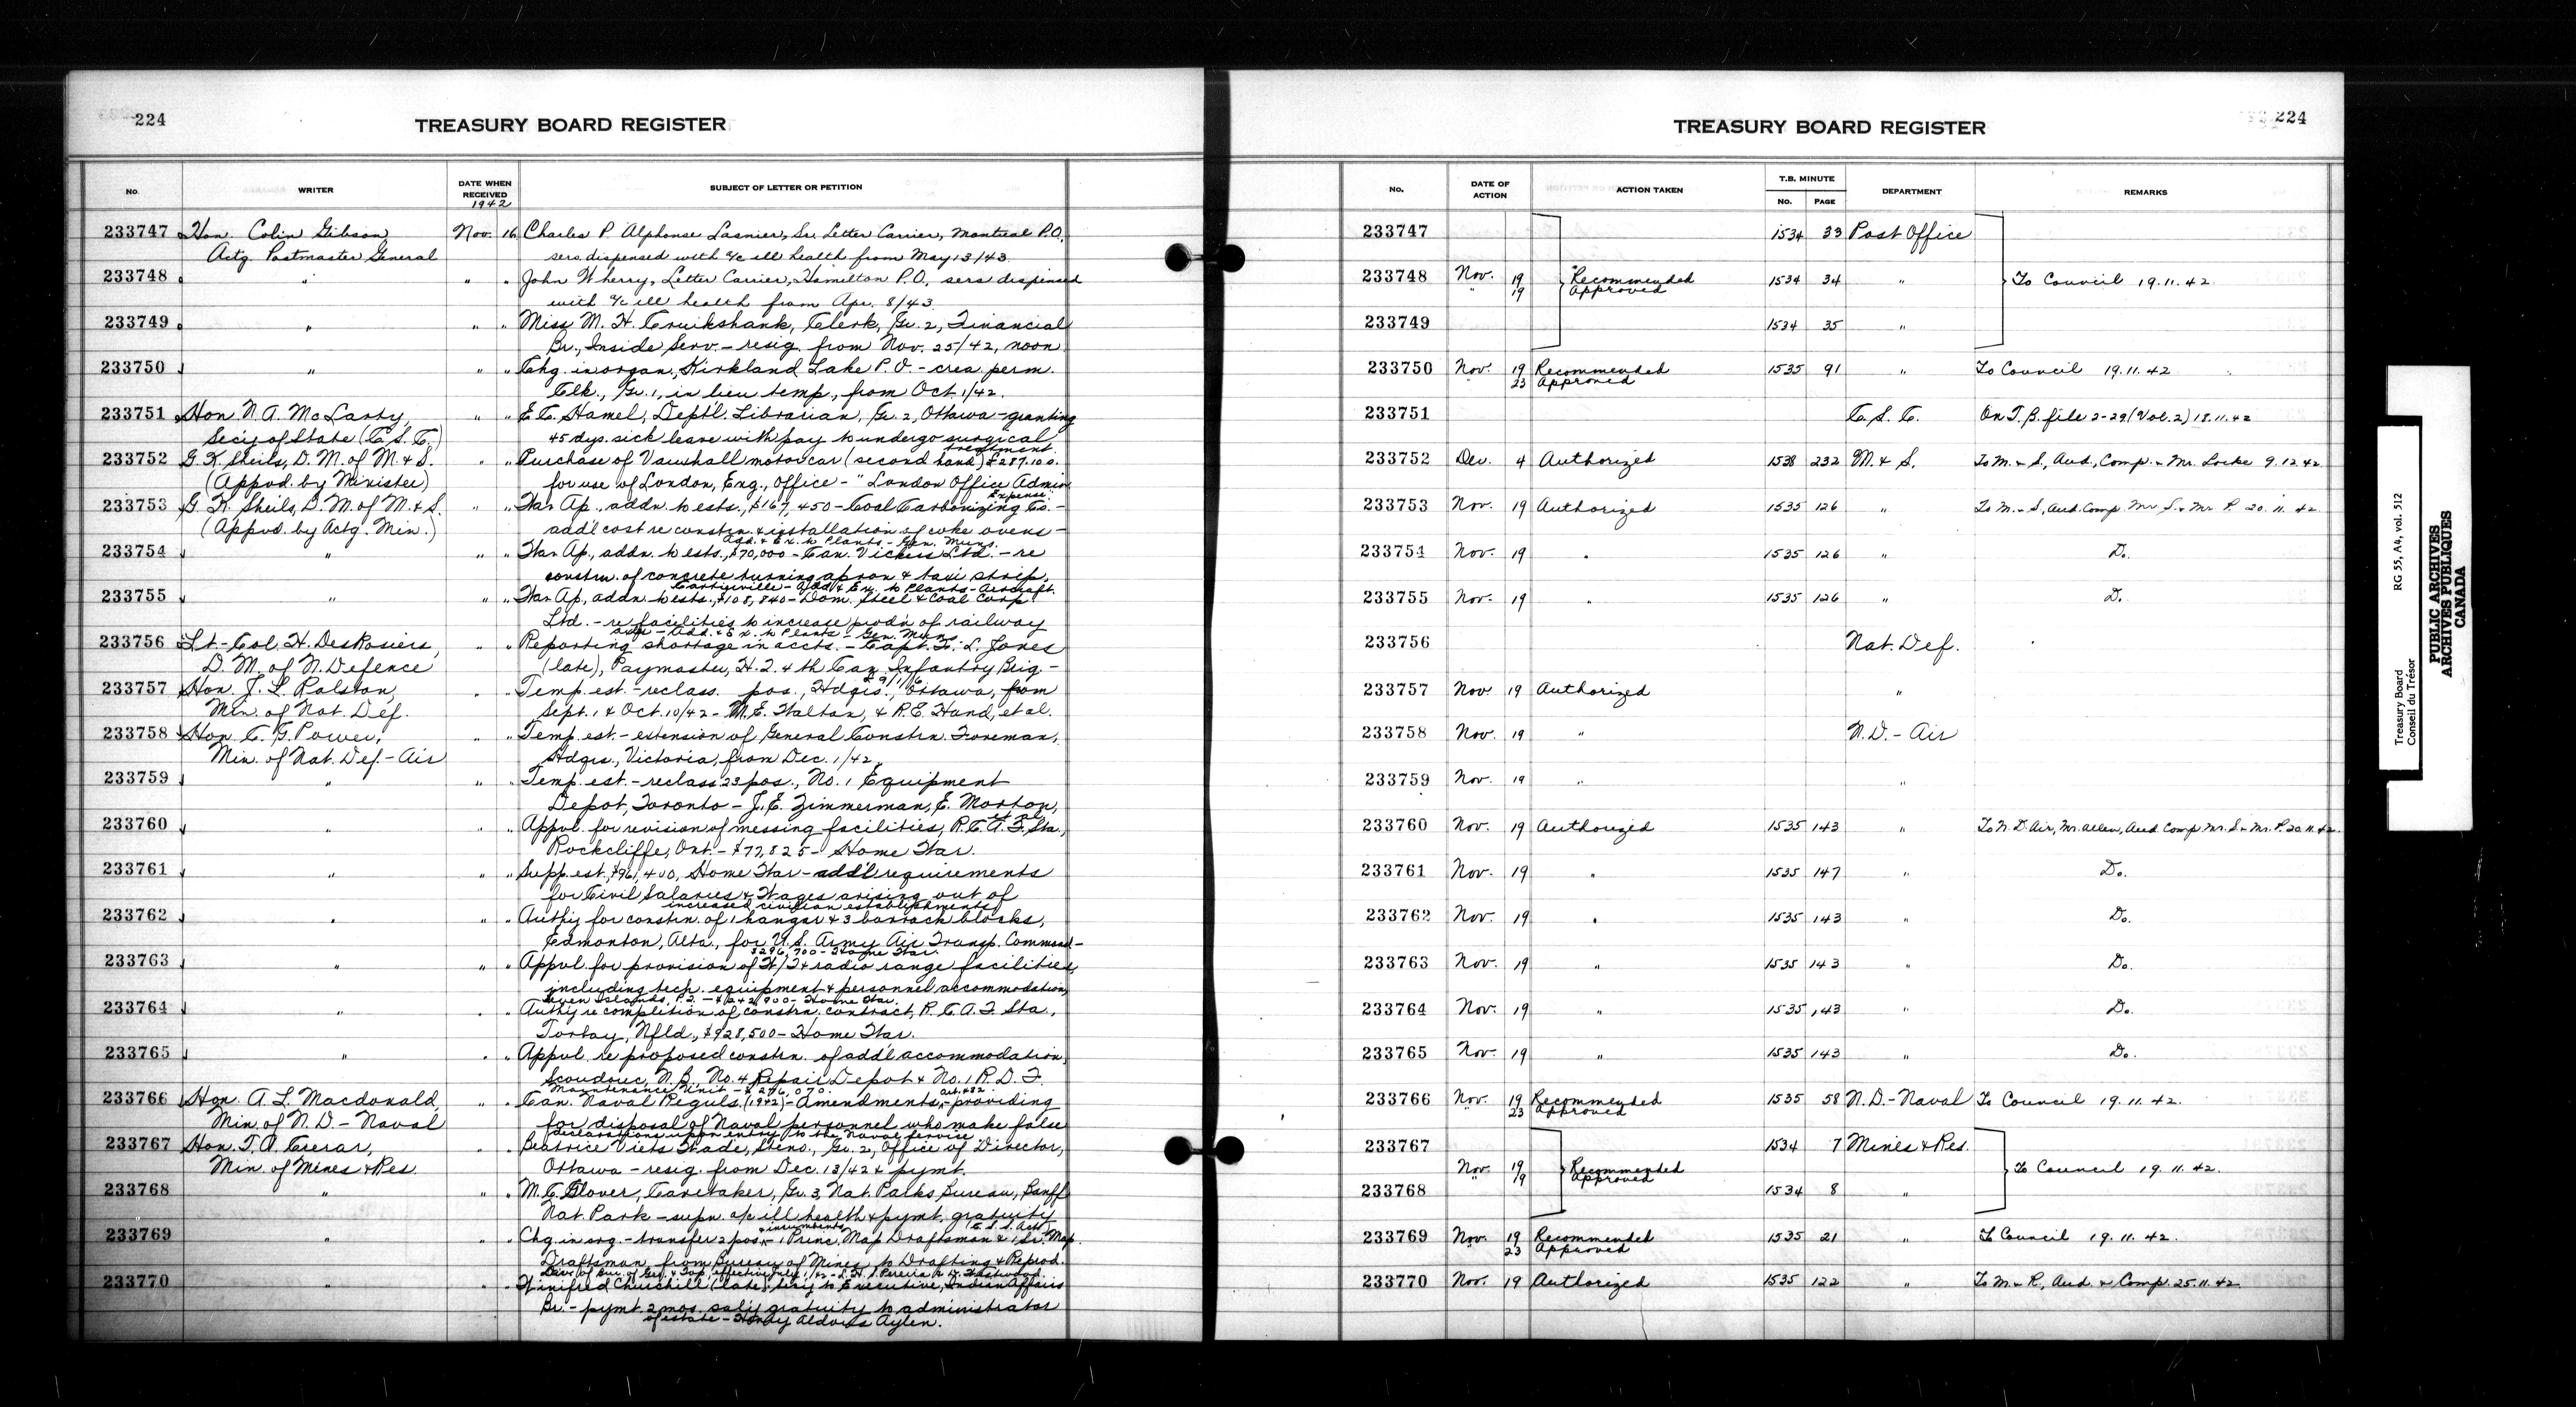 224
TREASURY BOARD REGISTER
No. WRITER DATE WHEN RECEIVED SUBJECT OF LETTER OR PETITION
1942
233747 Hon. Colin Gibson Nov. 16 Charles P. Alphonse Lasnier, Sr. Letter Carrier, Montreal P.O.,
Actg. Postmaster General sers. dispensed with a/c ill health from May 13/43.
233748 " " " John Wherry, Letter Carrier, Hamilton P.O., sers dispensed
with a/c ill health from Apr. 8/43
233749 " " " Miss M. H. Cruikshank, Clerk, Gr. 2, Financial
Br., Inside Serv. - resig. from Nov. 25/42, noon.
233750 " " " Chg. in organ, Kirkland Lake P.O. - crea. perm.
Clk., Gr. 1, in lieu temp., from Oct. 1/42.
233751 Hon. N. A. McLarty, " " E. C. Hamel, Deptl. Librarian, Gr. 2, Ottawa - granting
Sec'y of State (C. S. C.) 45 dys. sick leave with pay to undergo surgical
treatment.
233752 G. K. Sheils, D. M. of M. & S. " " Purchase of Vauxhall motor car (second hand) £287.10.0.
(Appvd. by Minister) for use of London, Eng., Office - "London Office Admin
Expense".
233753 G. K. Sheils, D. M. of M. & S. " " War Ap., addn. to ests., $167,450 - Coal Carbonizing Co. -
(Appvd. by Actg. Min.) add'l cost re constrn. & installation of coke ovens -
Add. & Ex. to Plants - Gen. Muns.
233754 " " " War Ap., addn. to ests., $70,000 - Can. Vickers Ltd. - re
constrn. of concrete turning apron & taxi strip,
Cartierville - Add. & Ex. to Plants - Aircraft.
233755 " " " War Ap., addn. to ests., $108,840 - Dom. Steel & Coal Corp
Ltd. - re facilities to increase prod'n of railway
- Add. & Ex. to Plants - Gen. Muns.
233756 Lt-Col. H. DesRosiers, " " Reporting shortage in accts. - Capt. F. L. Jones
D. M. of N. Defence (late), Paymaster, H.Q. 4th Can. Infantry Brig. -
233757 Hon. J. L. Ralston, " " Temp. est. - reclass. pos., Hdqrs., Ottawa, from
Min. of Nat. Def. Sept. 1 & Oct. 10/42 - M. E. Walton, & R. E. Hand, et al.
233758 Hon. C. G. Power, " " Temp. est. - extension of General Constrn. Foreman,
Min. of Nat. Def. - Air Hdqrs., Victoria, from Dec. 1/42.
233759 " " " Temp. est. - reclass 23 pos., No. 1 Equipment
Depot, Toronto - J. E. Zimmerman, E. Morton,
et al.
233760 " " " Appvl. for revision of messing facilities, R.C.A.F. Sta.,
Rockcliffe, Ont. - $77,825 - Home War.
233761 " " " Supp. est., $961,400, Home War - add'l requirements
for Civil Salaries & Wages arising out of
increased civilian establishments
233762 " " " Auth'y for constrn. of 1 hangar & 3 barrack blocks,
Edmonton, Alta., for U.S. Army Air Transp. Command -
$296,700 - Home War.
233763 " " " Appvl. for provision of W/T & radio range facilities,
including tech. equipment & personnel accommodation,
Seven Islands, P.Q. - $242,900 - Home War.
233764 " " " Auth'y re completion of constrn. contract, R.C.A.F. Sta.,
Torbay, Nfld., $928,500 - Home War.
233765 " " " Appvl. re proposed constrn. of add'l accommodation,
Scoudouc, N.B., No. 4 Repair Depot & No. 1 R.D.F.
Maintenance Unit - $296,070. Art. 482
233766 Hon. A. L. Macdonald, " " Can. Naval Reguls. (1942) - Amendments, - providing
Min. of N. D. - Naval for disposal of Naval personnel who make false
declarations upon entry to the Naval Service
233767 Hon. T. A. Crerar, " " Beatrice Viets Wade, Steno., Gr. 2, Office of Director,
Min. of Mines & Res. Ottawa - resig. from Dec. 13/42 & pymt.
233768 " " " M. C. Glover, Caretaker, Gr. 3, Nat. Parks Bureau, Banff
Nat. Park - supn. a/c ill health & pymt. gratuity
& incumbents (C. S. S. Act)
233769 " " Chg. in org. - transfer 2 pos. - 1 Princ. Map Draftsman & 1 Sr. Map
Draftsman, from Bureau of Mines, to Drafting & Reprod.
233770 " " Winifred Churchill (late), Sec'y to Executive, Indian Affairs
Br. - pymt. 2 mos. sal'y gratuity to administrator
of estate - Henry Aldous Aylen.
224
TREASURY BOARD REGISTER
No. DATE OF ACTION ACTION TAKEN T.B. MINUTE No. PAGE DEPARTMENT REMARKS
233747 1534 33 Post Office
233748 Nov. 19 Recommended 1534 34 " To Council 19.11.42.
" 19 Approved
233749 1534 35 "
233750 Nov. 19 Recommended 1535 91 " To Council 19.11.42
" 23 Approved
233751 C. S. C. On T. B. file 2-29 (Vol. 2) 18.11.42
233752 Dec. 4 Authorized 1538 232 M. & S. To M. & S., Aud., Comp. & Mr. Locke 9.12.42
233753 Nov. 19 Authorized 1535 126 " To M. & S., Aud. Comp. Mr. S. & Mr. P. 20.11.42
233754 Nov. 19 " 1535 126 " Do.
233755 Nov. 19 " 1535 126 " Do.
233756 Nat. Def.
233757 Nov. 19 Authorized "
233758 Nov. 19 " N.D. - Air
233759 Nov. 19 " "
233760 Nov. 19 Authorized 1535 143 " To N. D. Air, Mr. Allen, Aud. Comp. Mr. S. & Mr. P. 20.11.42.
233761 Nov. 19 " 1535 147 " Do.
233762 Nov. 19 " 1535 143 " Do.
233763 Nov. 19 " 1535 143 " Do.
233764 Nov. 19 " 1535 143 " Do.
233765 Nov. 19 " 1535 143 " Do.
233766 Nov. 19 Recommended 1535 58 N.D. - Naval To Council 19.11.42.
" 23 Approved
233767 1534 7 Mines & Res.
Nov. 19 Recommended To Council 19.11.42.
" 19 Approved
233768 1534 8 "
233769 Nov. 19 Recommended 1535 21 " To Council 19.11.42.
" 23 Approved
233770 Nov. 19 Authorized 1535 122 " To M. & R., Aud. & Comp. 25.11.42.
Treasury Board RG 55, A4, vol. 512
Conseil du Trésor
PUBLIC ARCHIVES
ARCHIVES PUBLIQUES
CANADA